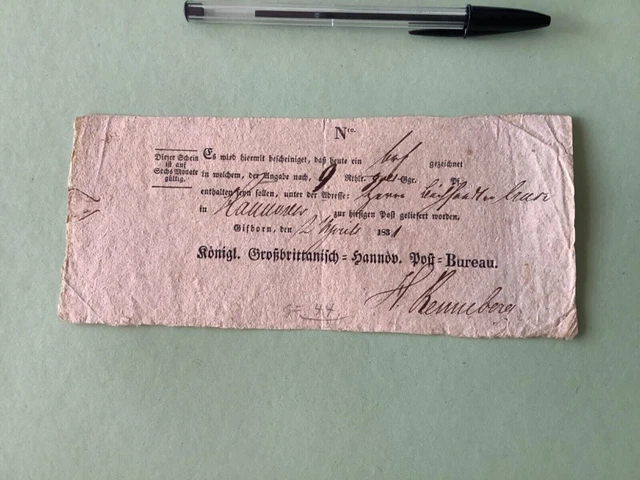 Nro.
Dieser Schein
ist auf
Sechs Monate
gültig.
Es wird hiermit bescheiniget, daß heute ein Brf gezeichnet
in welchem, der Angabe nach, 9 Rthlr. Ggr. Pf
enthalten seyn sollen, unter der Adresse: Herrn
in Hannover zur hiesigen Post geliefert worden,
Gifhorn, den 2 April 1831
Königl. Großbrittanisch-Hannöv. Post-Bureau.
Renneberg
44